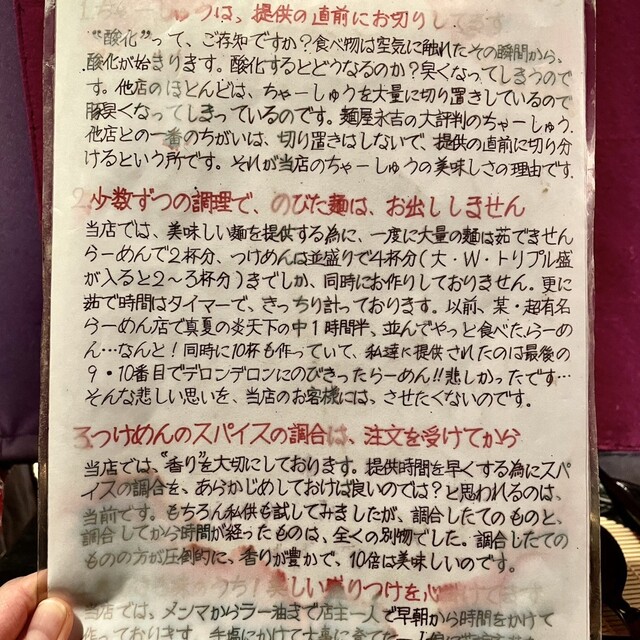 1.ちゃーしゅうは、提供の直前にお切りします
“酸化”って、ご存知ですか？食べ物は空気に触れたその瞬間から、
酸化が始まります。酸化するとどうなるのか？臭くなってしまうので
す。他店のほとんどは、ちゃーしゅうを大量に切り置きしているので
豚臭くなってしまっているのです。麺屋永吉の大評判のちゃーしゅう、
他店との一番のちがいは、切り置きはしないで、提供の直前に切り分
けるという所です。それが当店のちゃーしゅうの美味しさの理由です。
2.少数ずつの調理で、のびた麺は、お出ししません
当店では、美味しい麺を提供する為に、一度に大量の麺は茹できません
らーめんで2杯分、つけめんは並盛りで4杯分(大・W・トリプル盛
が入ると2～3杯分)までしか、同時にお作りしておりません。更に
茹で時間はタイマーで、きっちり計っております。以前、某・超有名
らーめん店で真夏の炎天下の中1時間半、並んでやっと食べたらーめ
ん…なんと！同時に10杯も作っていて、私達に提供されたのは最後の
9・10番目でデロンデロンにのびきったらーめん!!悲しかったです…
そんな悲しい思いを、当店のお客様には、させたくないのです。
3.つけめんのスパイスの調合は、注文を受けてから
当店では、“香り”を大切にしております。提供時間を早くする為にスパ
イスの調合を、あらかじめしておけば良いのでは？と思われるのは、
当前です。もちろん私供も試してみましたが、調合したてのものと、
調合してから時間が経ったものは、全くの別物でした。調合したての
ものの方が圧倒的に、香りが豊かで、10倍は美味しいのです。
うち！美しい盛りつけを心
当店では、メンマからラー油まで店主一人で早朝から時間をかけて
作っております。手塩にかけて大事に育てた